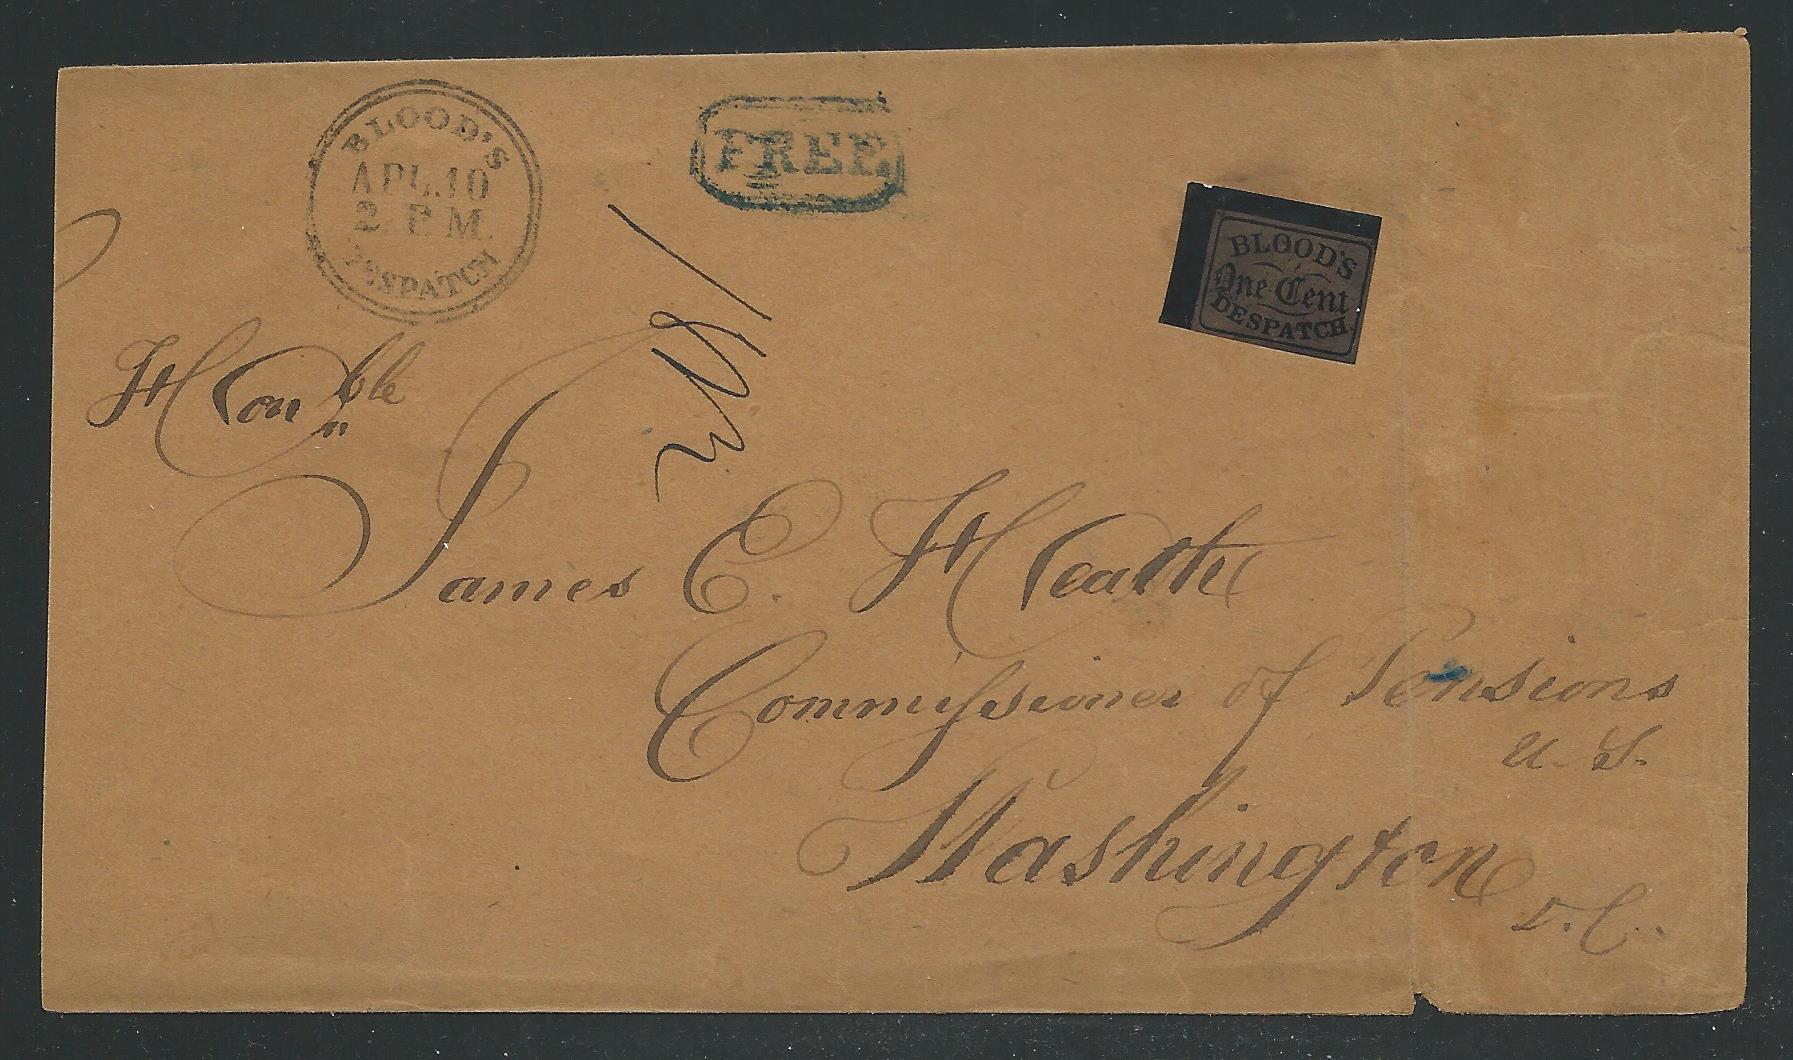 BLOOD'S
APL.10
2 P.M.
DESPATCH
FREE
BLOOD'S
One Cent
DESPATCH
Hon,,ble
James E. Heath
Commissioner of Pensions
U. S.
Washington
D. C.